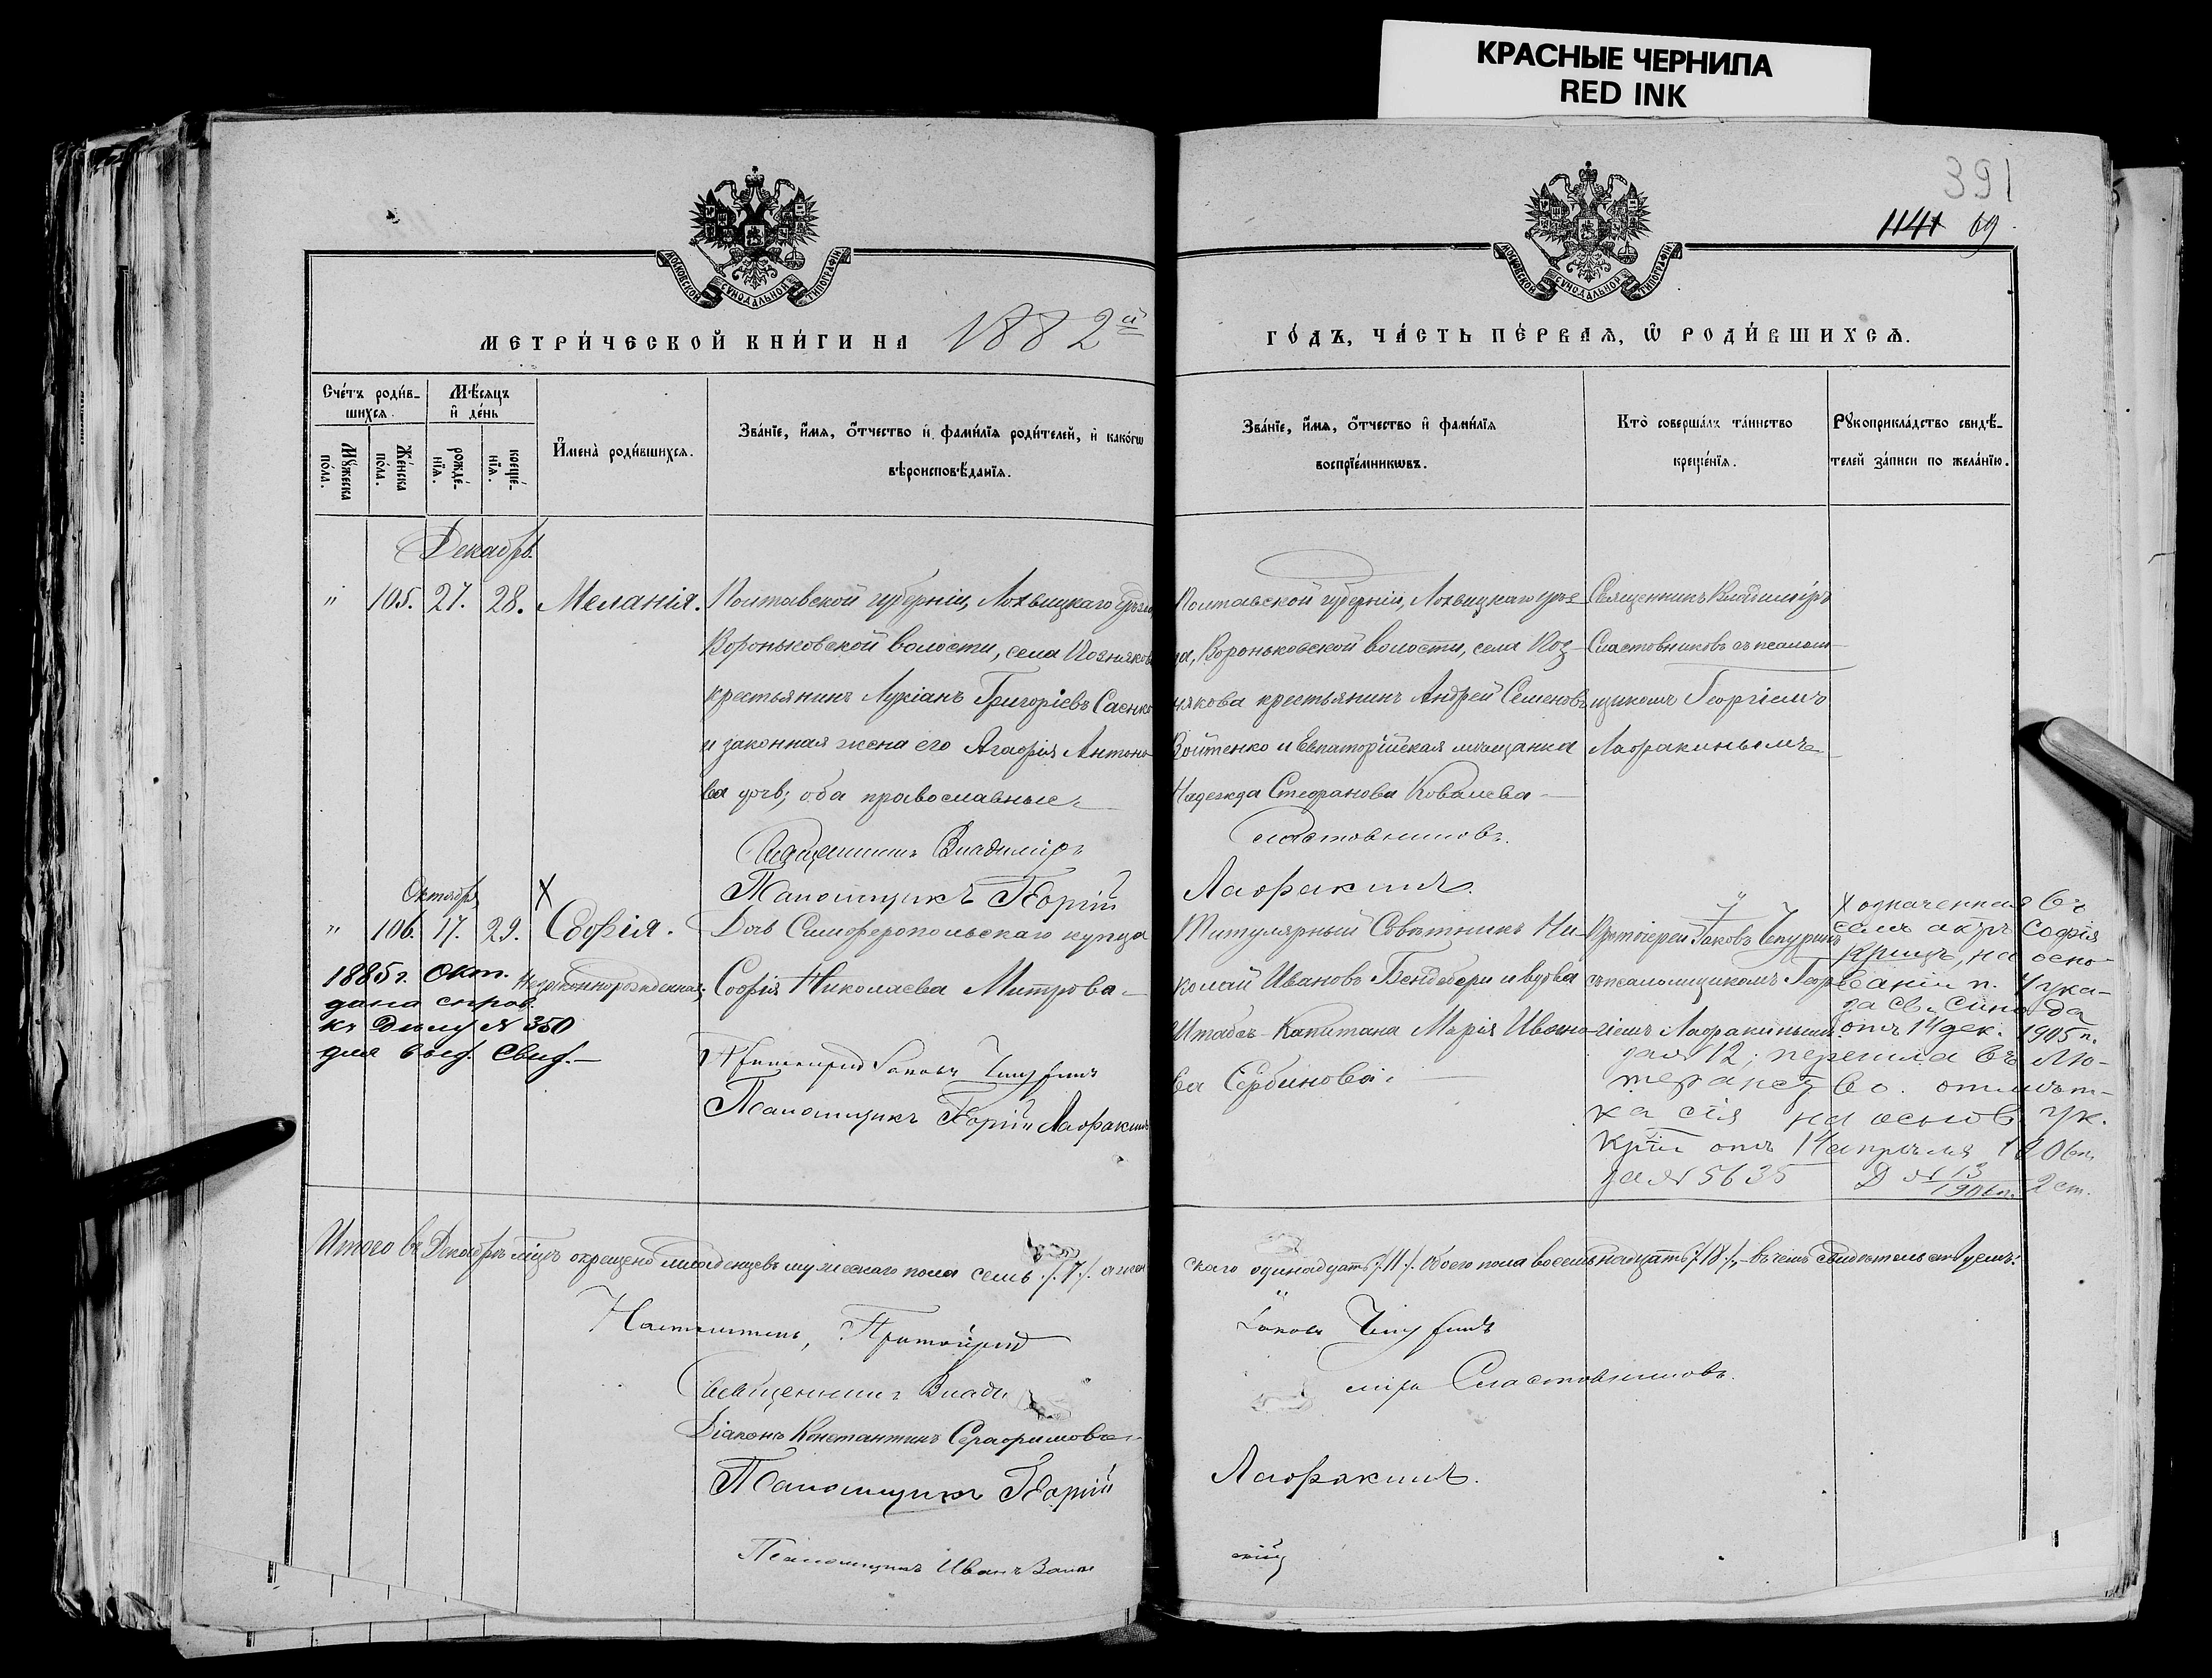 КРАСНЫЕ ЧЕРНИЛА
RED INK
391
1141 69
МОСКОВСКОЙ СѴНОДАЛЬНОЙ ТИПОГРАФІИ
МОСКОВСКОЙ СѴНОДАЛЬНОЙ ТИПОГРАФІИ
МЕТРИ́ЧЕСКОЙ КНИ́ГИ НА 1882й
ГО́ДЪ, ЧА́СТЬ ПЕ́РВАЯ, Ѡ РОДИ́ВШИХСЯ.
Сче́тъ роди́в-
шихся.
Мѣ́сяцъ
и де́нь
Му́жеска
по́ла.
Же́нска
по́ла.
рожде́-
нїя.
креще́-
нїя.
Имена̀ роди́вшихся.
Зва́нїе, и́мя, о́тчество и фами́лїя роди́телей, и како́гѡ
вѣроисповѣ́данїя.
Зва́нїе, и́мя, о́тчество и фами́лїя
воспрїе́мникѡвъ.
Кто̀ соверша́лъ та́инство
креще́нїя.
Рукоприкла́дство свидѣ́-
телей за́писи по жела́нїю.
Декабрь.
" 105. 27. 28. Меланія.
Полтавской губерніи, Лохвицкаго уѣзда,
Вороньковской волости, села Позняков
крестьянинъ Лукіанъ Григоріевъ Саенко
и законная жена его Агафія Антоно-
ва дочь; оба православные.
Священникъ Владиміръ
Псаломщикъ Георгій
Полтавской губерніи, Лохвицкаго уѣз-
да, Вороньковской волости, села Поз-
някова крестьянинъ Андрей Семеновъ
Войтенко и Евпаторійская мѣщанка
Надежда Стефанова Ковалева
Сластовниковъ.
Лафракинъ.
Священникъ Владиміръ
Сластовниковъ съ псалом-
щикомъ Георгіемъ
Лафракинымъ
Октябрь Х
" 106. 17. 29. Софія.
Незаконнорожденная;
1885 г. Окт.
дана справ.
къ Дѣлу № 350
для выд. Свид.
Дочь Симферопольскаго купца
Софія Николаева Митрова
Протоіерей Іаковъ Чепуринъ
Псаломщикъ Георгій Лафракинъ
Титулярный Совѣтникъ Ни-
колай Ивановъ Бендебери и вдова
Штабсъ-Капитана Марія Ивано-
ва Сербинова.
Протоіерей Іаковъ Чепуринъ
съ псаломщикомъ Геор-
гіемъ Лафракинымъ
Х означенная въ
семъ актѣ Софія
на осно-
ваніи п. 1 ука-
за Св. Синода
отъ 14 дек. 1905 г.
за № 12, перешла въ Лю-
теранство. отмѣт-
ка сія на основ. ук.
отъ 1 апрѣля 1906 г.
за № 5635 Д № 13/1906 г. 2 ст.
Итого въ Декабрѣ мцѣ окрещено младенцевъ мужескаго пола семь /.7./. а жен
скаго одинадцать /.11./. обоего пола восемьнадцать /.18./, въ чемъ свидѣтельствуемъ:
Настоятель, Протоіерей
Іаковъ Чепуринъ
Священникъ Влади
міръ Сластовниковъ.
Діаконъ Константинъ Серафимовъ
Псаломщикъ Георгій
Лафракинъ.
Псаломщикъ Иванъ
скій